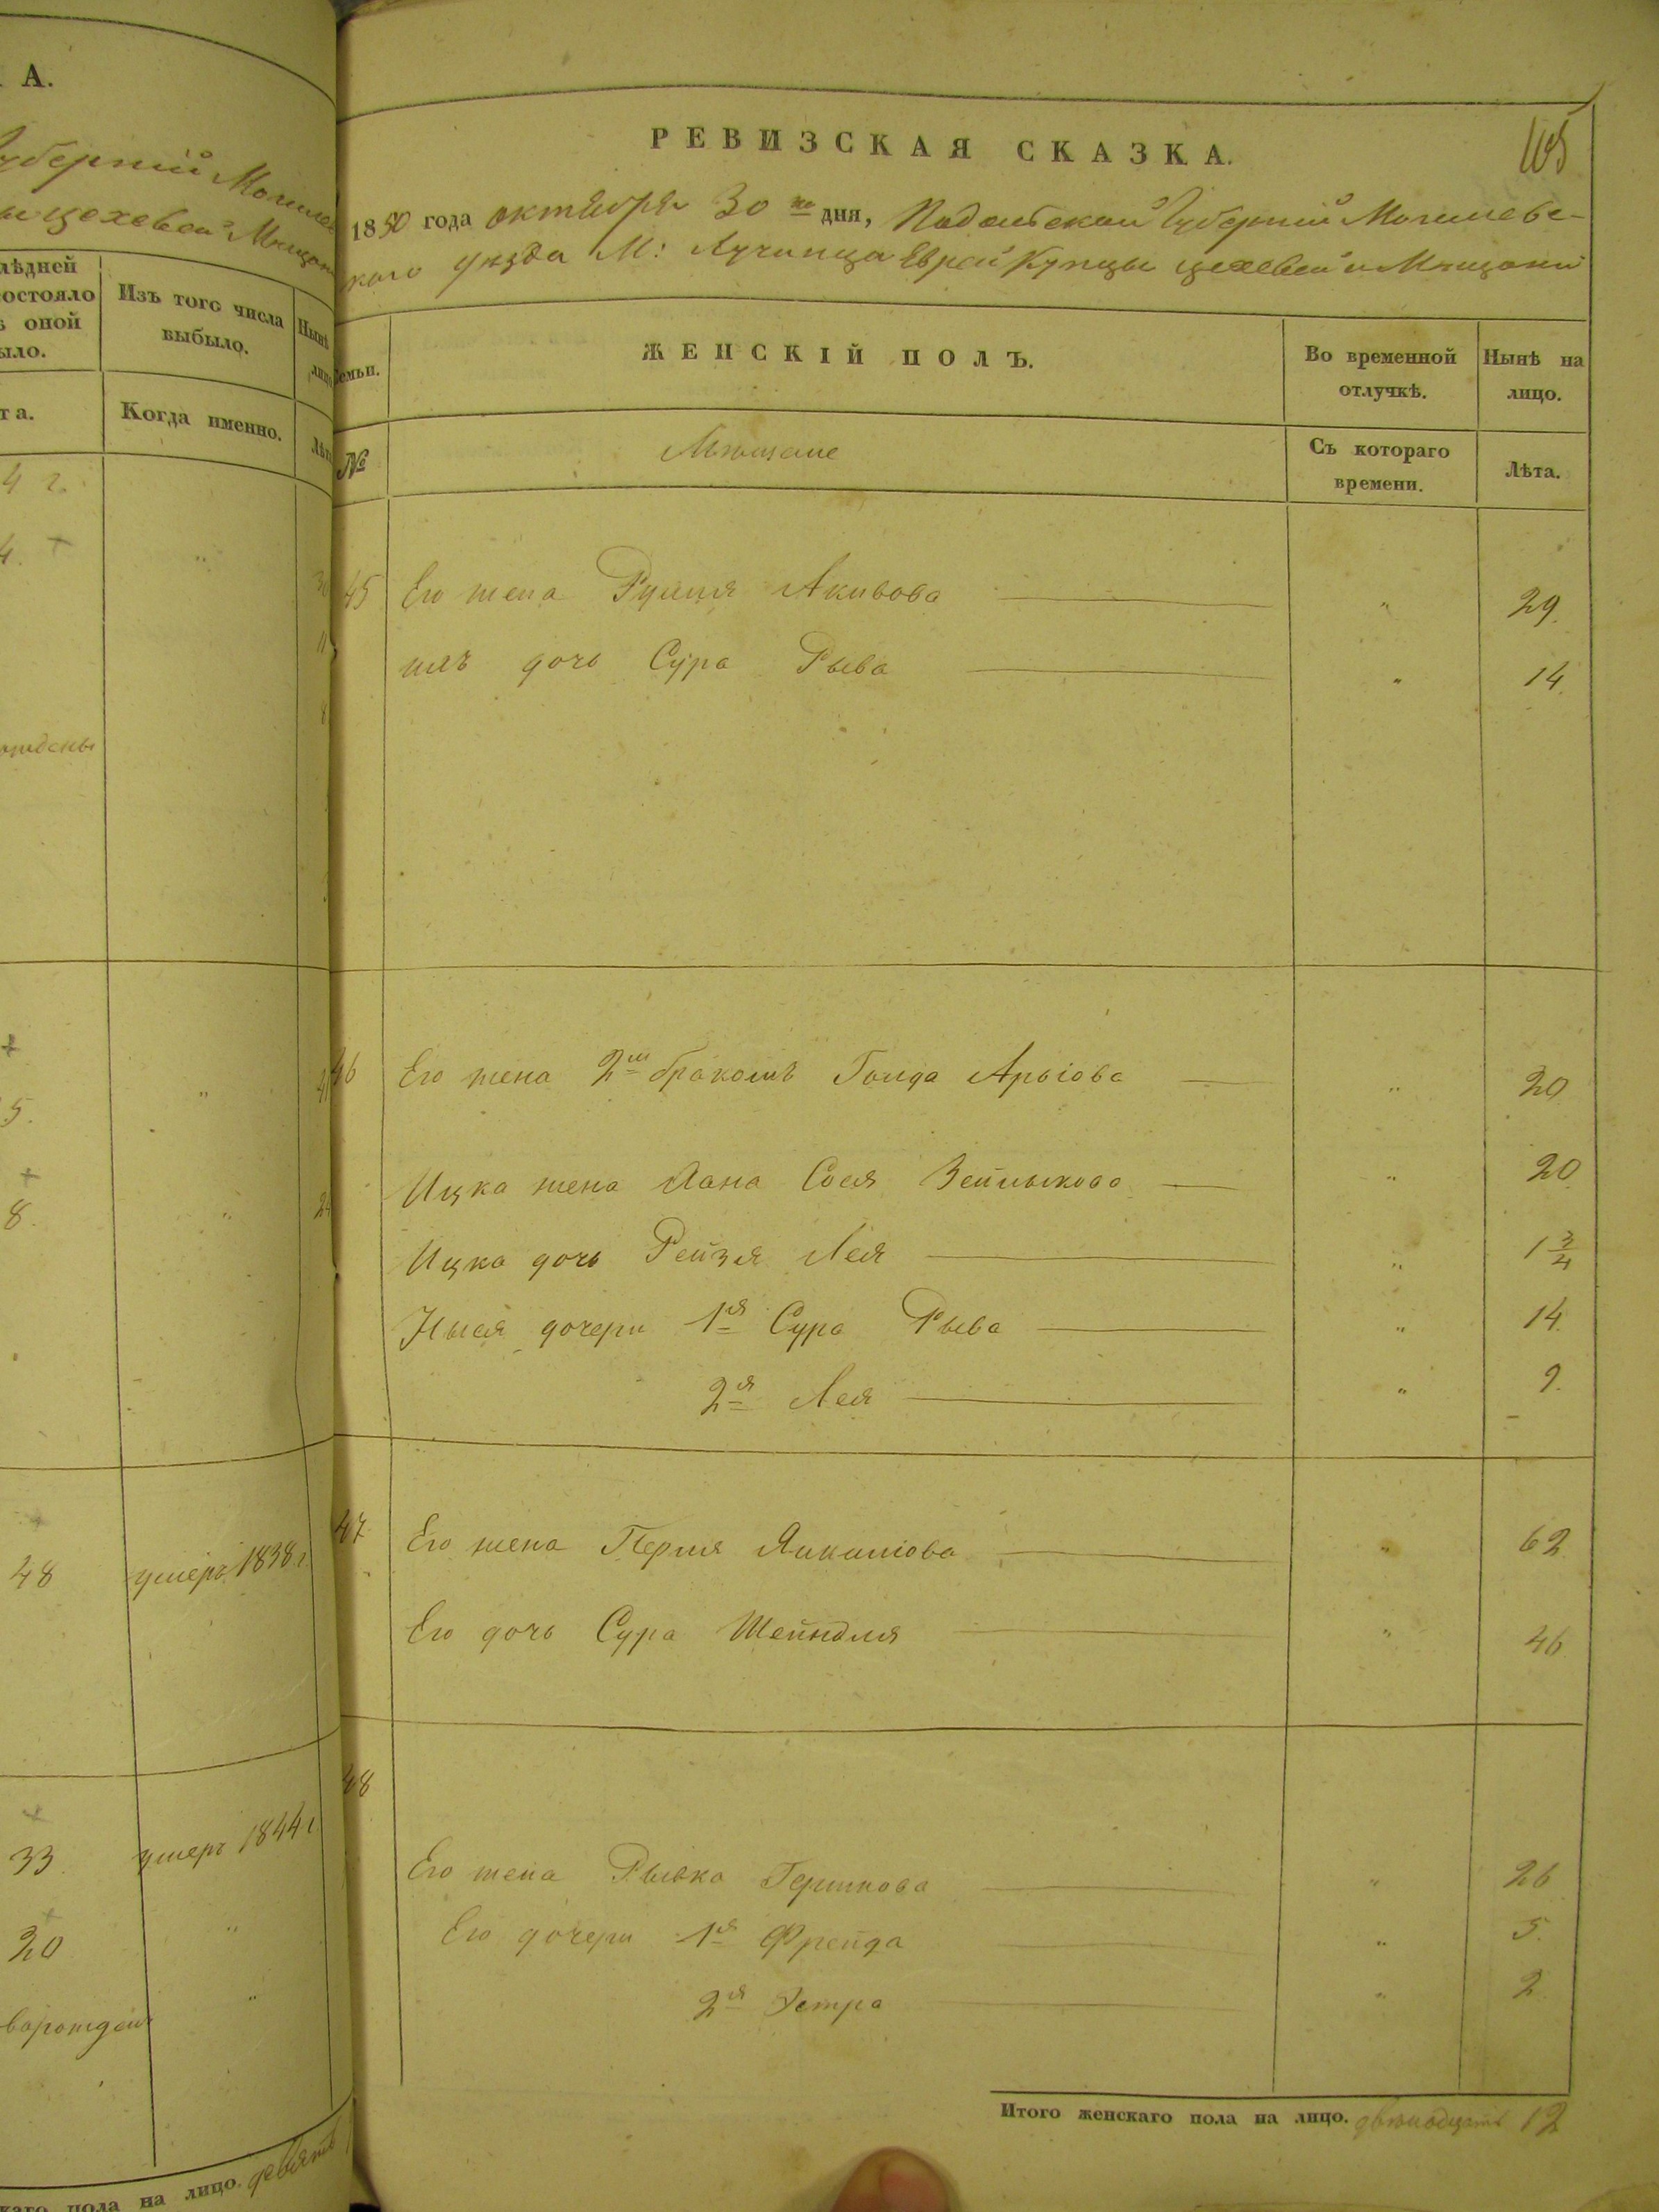 А.
Губерніи Могилев
ы цеховыи Мещан
РЕВИЗСКАЯ СКАЗКА.
105
1850 года октября 30 го дня, Подольской Губерніи Могилевс-
кого уезда М: Лучинца Евреи Купцы цеховыи и Мещани
лѣдней
состояло
ѣ оной
ыло.
Изъ того числа
выбыло.
Нынѣ
лицо
та.
Когда именно.
Лѣта
Семьи.
ЖЕНСКІЙ ПОЛЪ.
Во временной
отлучкѣ.
Нынѣ на
лицо.
№
Мещане
Съ котораго
времени.
Лѣта.
4 г.
4. +
45 Его жена Рухля Акивова " 29.
ихъ дочь Сура Рыва " 14.
46 Его жена 2м бракомъ Голда Арыова " 20
5.
Ицка жена Хана Сося Зейлыкова " 20.
8.
Ицка дочь Рейзя Лея " 1 3/4
дочери 1я Сура Рыва " 14.
2я Лея " 9.
48 умеръ 1838 г.
47 Его жена Перля " 62
Его дочь Сура Шейндля " 46
48
33. умеръ 1844 г.
Его жена Рывка Гершкова " 26
20
Его дочери 1я Фрейда " 5.
2я Эстра " 2.
Итого женскаго пола на лицо. двенадцать 12
каго пола на лицо. девять